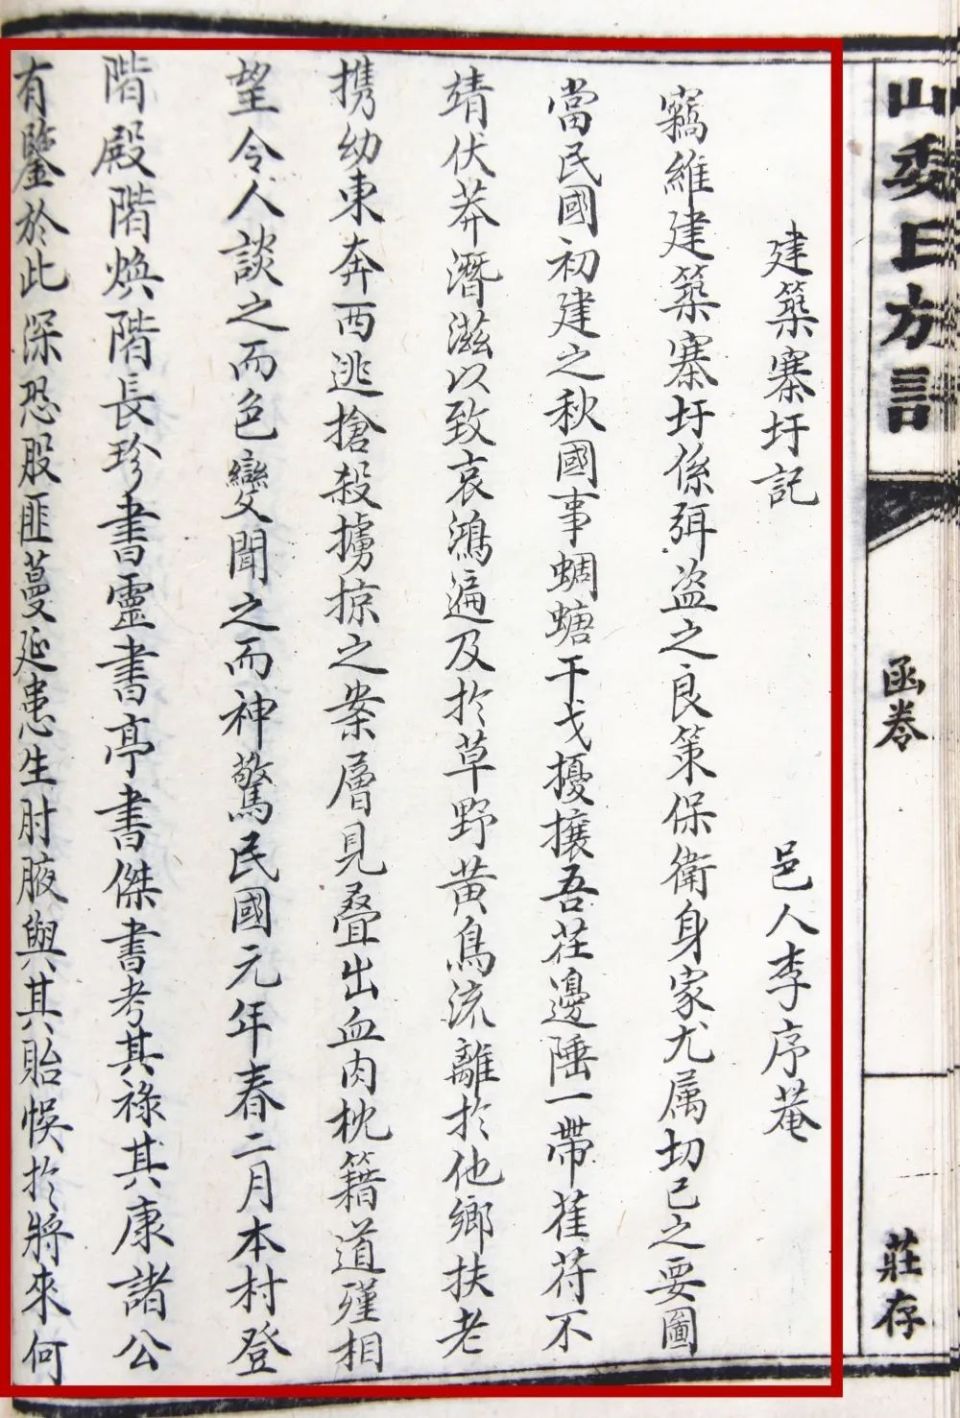 山委氏方
函卷
莊存
建築寨圩記 邑人李序菴
竊維建築寨圩係弭盗之良策保衛身家尤属切己之要圖
當民國初建之秋國事蜩螗干戈擾攘吾莊邊陲一帶萑苻不
靖伏莽潛滋以致哀鴻遍及於草野黄鳥流離於他鄉扶老
携幼東奔西逃搶殺擄掠之案層見叠出血肉枕籍道殣相
望令人談之而色變聞之而神驚民國元年春二月本村登
階殿階焕階長珍書靈書亭書傑書考其祿其康諸公
有鑒於此深恐股匪蔓延患生肘腋與其貽悞於將來何